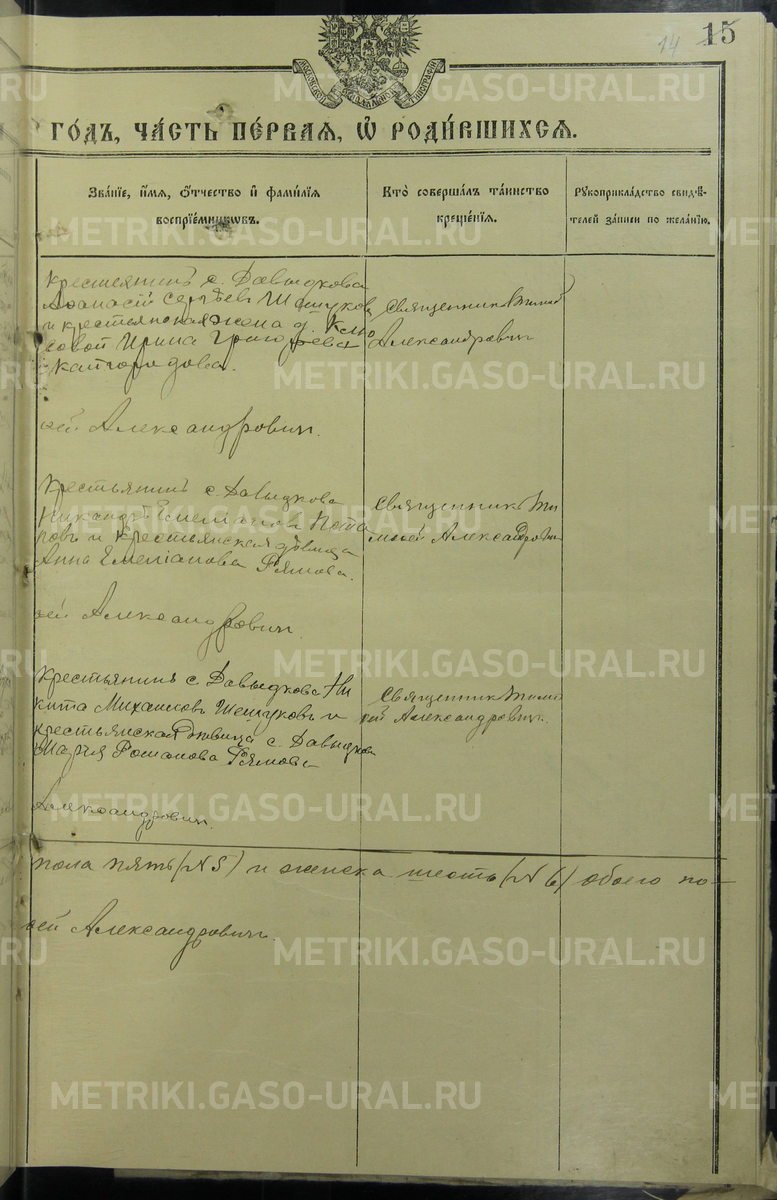 14 15
МОСКОВСКОЙ СѴНОДАЛЬНОЙ ТИПОГРАФІИ
ГО́ДЪ, ЧА́СТЬ ПЕ́РВАЯ, Ѡ҆ РОДИ́ВШИХСѦ.
Зва́нїе, и҆́мѧ, ѻ҆́тчество и҆ фами́лїѧ
воспрїе́мникѡвъ.
Кто̀ соверша́лъ та́инство
креще́нїѧ.
Рꙋкоприкла́дство свидѣ́-
телей за́писи по жела́нїю.
Крестьянинъ с. Давыдкова
Афанасій Сергѣевъ Шешуковъ
и крестьянская жена д. Клю
совой Ирина Григорьева
Кайгородова.
Священникъ Тимоѳ
Александрович
ѳей Александрович.
Крестьянинъ с. Давыдкова
Никандръ Емеліанов Пота
повъ и крестьянская дѣвица
Анна Емеліанова Рямова.
Священникъ Ти
моѳей Александрович
ѳей Александрович.
Крестьянинъ с. Давыдкова Ни
кита Михаиловъ Шешуковъ и
крестьянская дѣвица с. Давыдкова
Марія Романова Рямова
Священникъ Тимо
ѳей Александрович.
Александрович.
пола пять (№ 5) и женска шесть (№ 6) обоего по-
ѳей Александрович.
METRIKI.GASO-URAL.RU